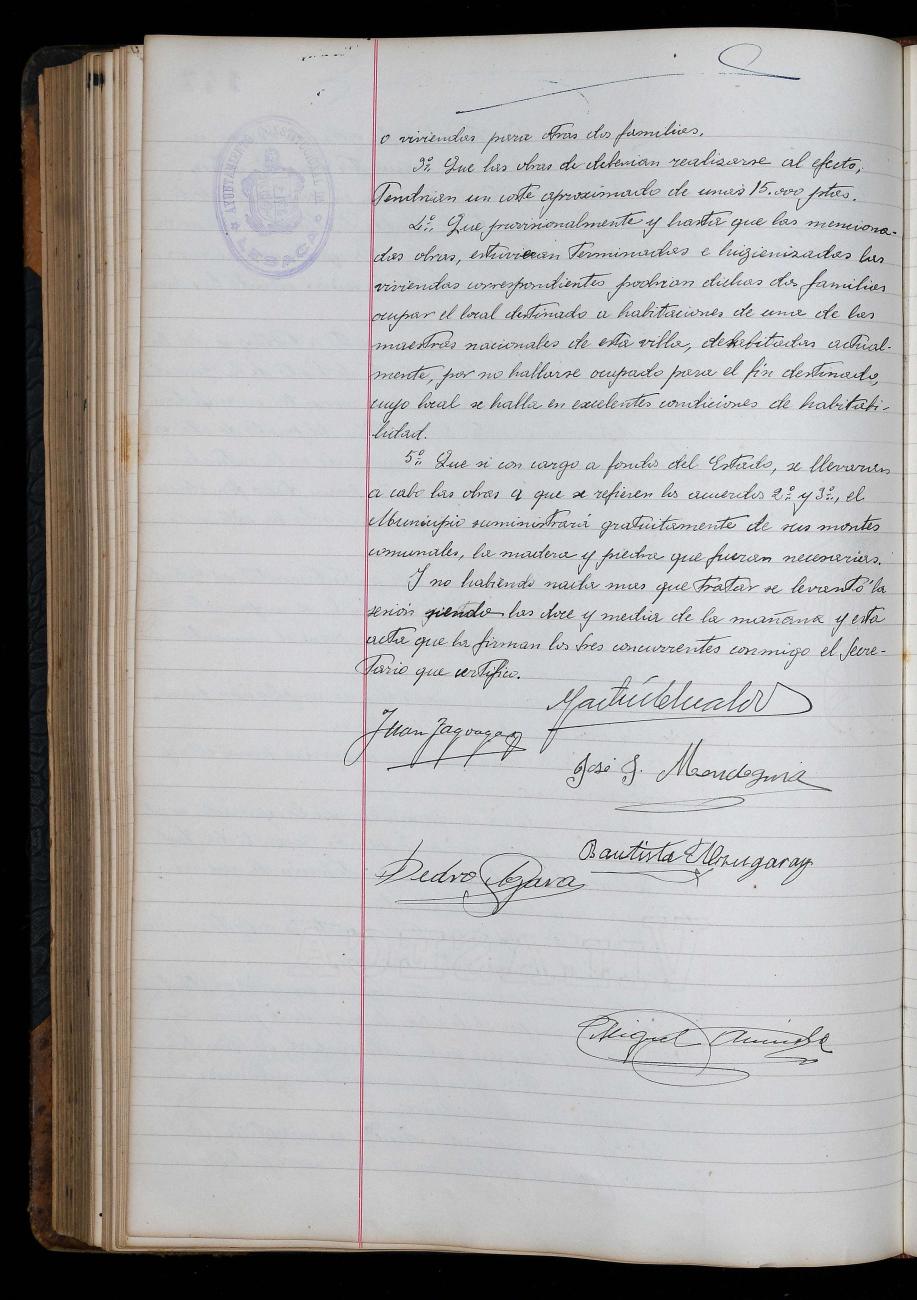 AYUNTAMIENTO CONSTITUCIONAL DE
LESACA
o viviendas para otras dos familias.
3º. Que las obras de deberian realizarse al efecto,
Tendrian un coste aproximado de unas 15.000 ptas.
4º. Que provisionalmente y hasta que las menciona-
das obras, estuvieran Terminadas e higienizadas las
viviendas correspondientes podrian dichas dos familias
ocupar el local destinado a habitaciones de una de las
maestras nacionales de esta villa, actual-
mente, por no hallarse ocupado para el fin destinado,
cuyo local se halla en excelentes condiciones de habitabi-
lidad.
5º. Que si con cargo a fondos del Estado, se llevaran
a cabo las obras a que se refieren los acuerdos 2º. y 3º., el
Municipio suministrará gratuitamente de sus montes
comunales, la madera y piedra que fueran necesarias.
Y no habiendo nada mas que Tratar se levantó la
sesión siendo las doce y media de la mañana y esta
acta que la firman los tres concurrentes conmigo el Secre-
tario que certifico.
Juan
José J. Mendeguia
Bautista
Pedro
Miguel